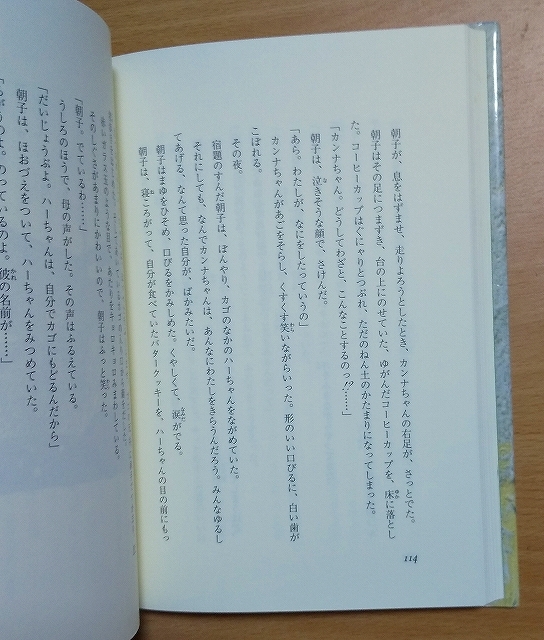 朝子が、息をはずませ、走りよろうとしたとき、カンナちゃんの右足が、さっとでた。
朝子はその足につまずき、台の上にのせていた、ゆがんだコーヒーカップを、床に落とし
た。コーヒーカップはぐにゃりとつぶれ、ただのねん土のかたまりになってしまった。
「カンナちゃん。どうしてわざと、こんなことするのっ!?……」
朝子は、泣きそうな顔で、さけんだ。
「あら。わたしが、なにをしたっていうの」
カンナちゃんがあごをそらし、くすくす笑いながらいった。形のいい口びるに、白い歯が
こぼれる。
その夜。
宿題のすんだ朝子は、ぼんやり、カゴのなかのハーちゃんをながめていた。
それにしても、なんでカンナちゃんは、あんなにわたしをきらうんだろう。みんなゆるし
てあげる、なんて思った自分が、ばかみたいだ。
朝子はまゆをひそめ、口びるをかみしめた。くやしくて、涙がでる。
朝子は、寝ころがって、自分が食べていたバタークッキーを、ハーちゃんの目の前にもっ
114
そのしぐさがあまりにかわいいので、朝子はふっと笑った。
「朝子。でているわ……」
うしろのほうで、母の声がした。その声はふるえている。
「だいじょうぶよ。ハーちゃんは、自分でカゴにもどるんだから」
朝子は、ほおづえをついて、ハーちゃんをみつめていた。
のっているのよ。彼の名前が……」